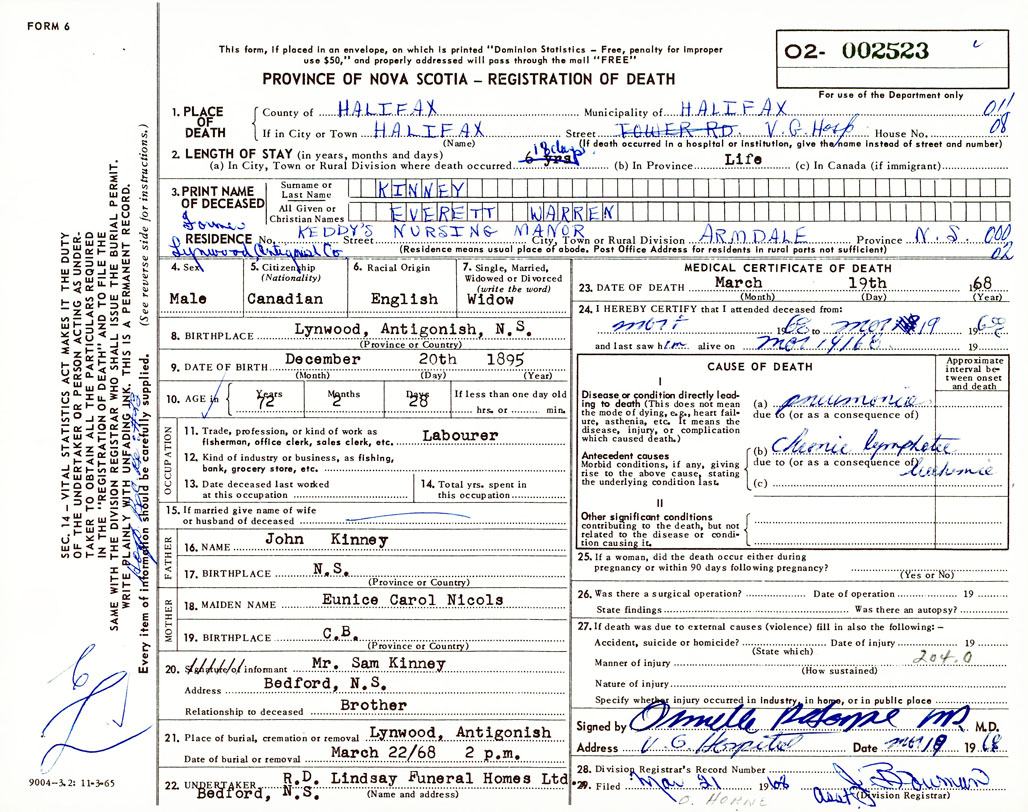 FORM 6
This form, if placed in an envelope, on which is printed "Dominion Statistics – Free, penalty for improper
use $50," and properly addressed will pass through the mail "FREE"
PROVINCE OF NOVA SCOTIA – REGISTRATION OF DEATH
O2- 002523
For use of the Department only
SEC. 14 – VITAL STATISTICS ACT MAKES IT THE DUTY
OF THE UNDERTAKER OR PERSON ACTING AS UNDER-
TAKER TO OBTAIN ALL THE PARTICULARS REQUIRED
IN THE "REGISTRATION OF DEATH" AND TO FILE THE
SAME WITH THE DIVISION REGISTRAR WHO SHALL ISSUE THE BURIAL PERMIT.
WRITE PLAINLY WITH UNFADING INK. THIS IS A PERMANENT RECORD.
Every item of information should be carefully supplied. (See reverse side for instructions.)
1. PLACE OF DEATH
County of HALIFAX Municipality of HALIFAX 011
If in City or Town HALIFAX Street TOWER RD. V.G. Hosp House No. 08
(Name) (If death occurred in a hospital or institution, give the name instead of street and number)
2. LENGTH OF STAY (in years, months and days) 18 days
(a) In City, Town or Rural Division where death occurred 6 yrs (b) In Province Life (c) In Canada (if immigrant)
3. PRINT NAME OF DECEASED
Surname or Last Name KINNEY
All Given or Christian Names EVERETT WARREN
Former
RESIDENCE No. KEDDY'S NURSING MANOR Street City, Town or Rural Division ARMDALE Province N.S. 000
Lynwood, Antigonish Co (Residence means usual place of abode. Post Office Address for residents in rural parts not sufficient) 02
4. Sex
Male
5. Citizenship
(Nationality)
Canadian
6. Racial Origin
English
7. Single, Married,
Widowed or Divorced
(write the word)
Widow
8. BIRTHPLACE Lynwood, Antigonish, N.S.
(Province or Country)
9. DATE OF BIRTH December 20th 1895
(Month) (Day) (Year)
10. AGE in Years Months Days If less than one day old
72 2 28 hrs. or min.
OCCUPATION
11. Trade, profession, or kind of work as
fisherman, office clerk, sales clerk, etc. Labourer
12. Kind of industry or business, as fishing,
bank, grocery store, etc.
13. Date deceased last worked
at this occupation
14. Total yrs. spent in
this occupation
15. If married give name of wife
or husband of deceased
FATHER
16. NAME John Kinney
17. BIRTHPLACE N.S.
(Province or Country)
MOTHER
18. MAIDEN NAME Eunice Carol Nicols
19. BIRTHPLACE C.B.
(Province or Country)
20. Signature of informant Mr. Sam Kinney
Address Bedford, N.S.
Relationship to deceased Brother
21. Place of burial, cremation or removal Lynwood, Antigonish
Date of burial or removal March 22/68 2 p.m.
22. UNDERTAKER R.D. Lindsay Funeral Homes Ltd.
Bedford, N.S. (Name and address)
9004-3.2: 11-3-65
MEDICAL CERTIFICATE OF DEATH
23. DATE OF DEATH March 19th 1968
(Month) (Day) (Year)
24. I HEREBY CERTIFY that I attended deceased from:
1968 to mar 19 1968
and last saw him alive on mar 19/68 19
CAUSE OF DEATH
Approximate
interval be-
tween onset
and death
I
Disease or condition directly lead-
ing to death (This does not mean
the mode of dying, e.g., heart fail-
ure, asthenia, etc. It means the
disease, injury, or complication
which caused death.)
(a) pneumonia
due to (or as a consequence of)
Antecedent causes
Morbid conditions, if any, giving
rise to the above cause, stating
the underlying condition last.
(b) Chronic lymphatic
due to (or as a consequence of) leukemia
(c)
II
Other significant conditions
contributing to the death, but not
related to the disease or condi-
tion causing it.
25. If a woman, did the death occur either during
pregnancy or within 90 days following pregnancy?
(Yes or No)
26. Was there a surgical operation? Date of operation 19
State findings Was there an autopsy?
27. If death was due to external causes (violence) fill in also the following: –
Accident, suicide or homicide? Date of injury 19
(State which) 204.0
Manner of injury
(How sustained)
Nature of injury
Specify whether injury occurred in industry, in home, or in public place
Signed by M.D.
Address V.G. Hospital Date mar 19 1968
28. Division Registrar's Record Number
29. Filed Mar 21 1968 J. Bowman
O. HORNE asst (Division Registrar)